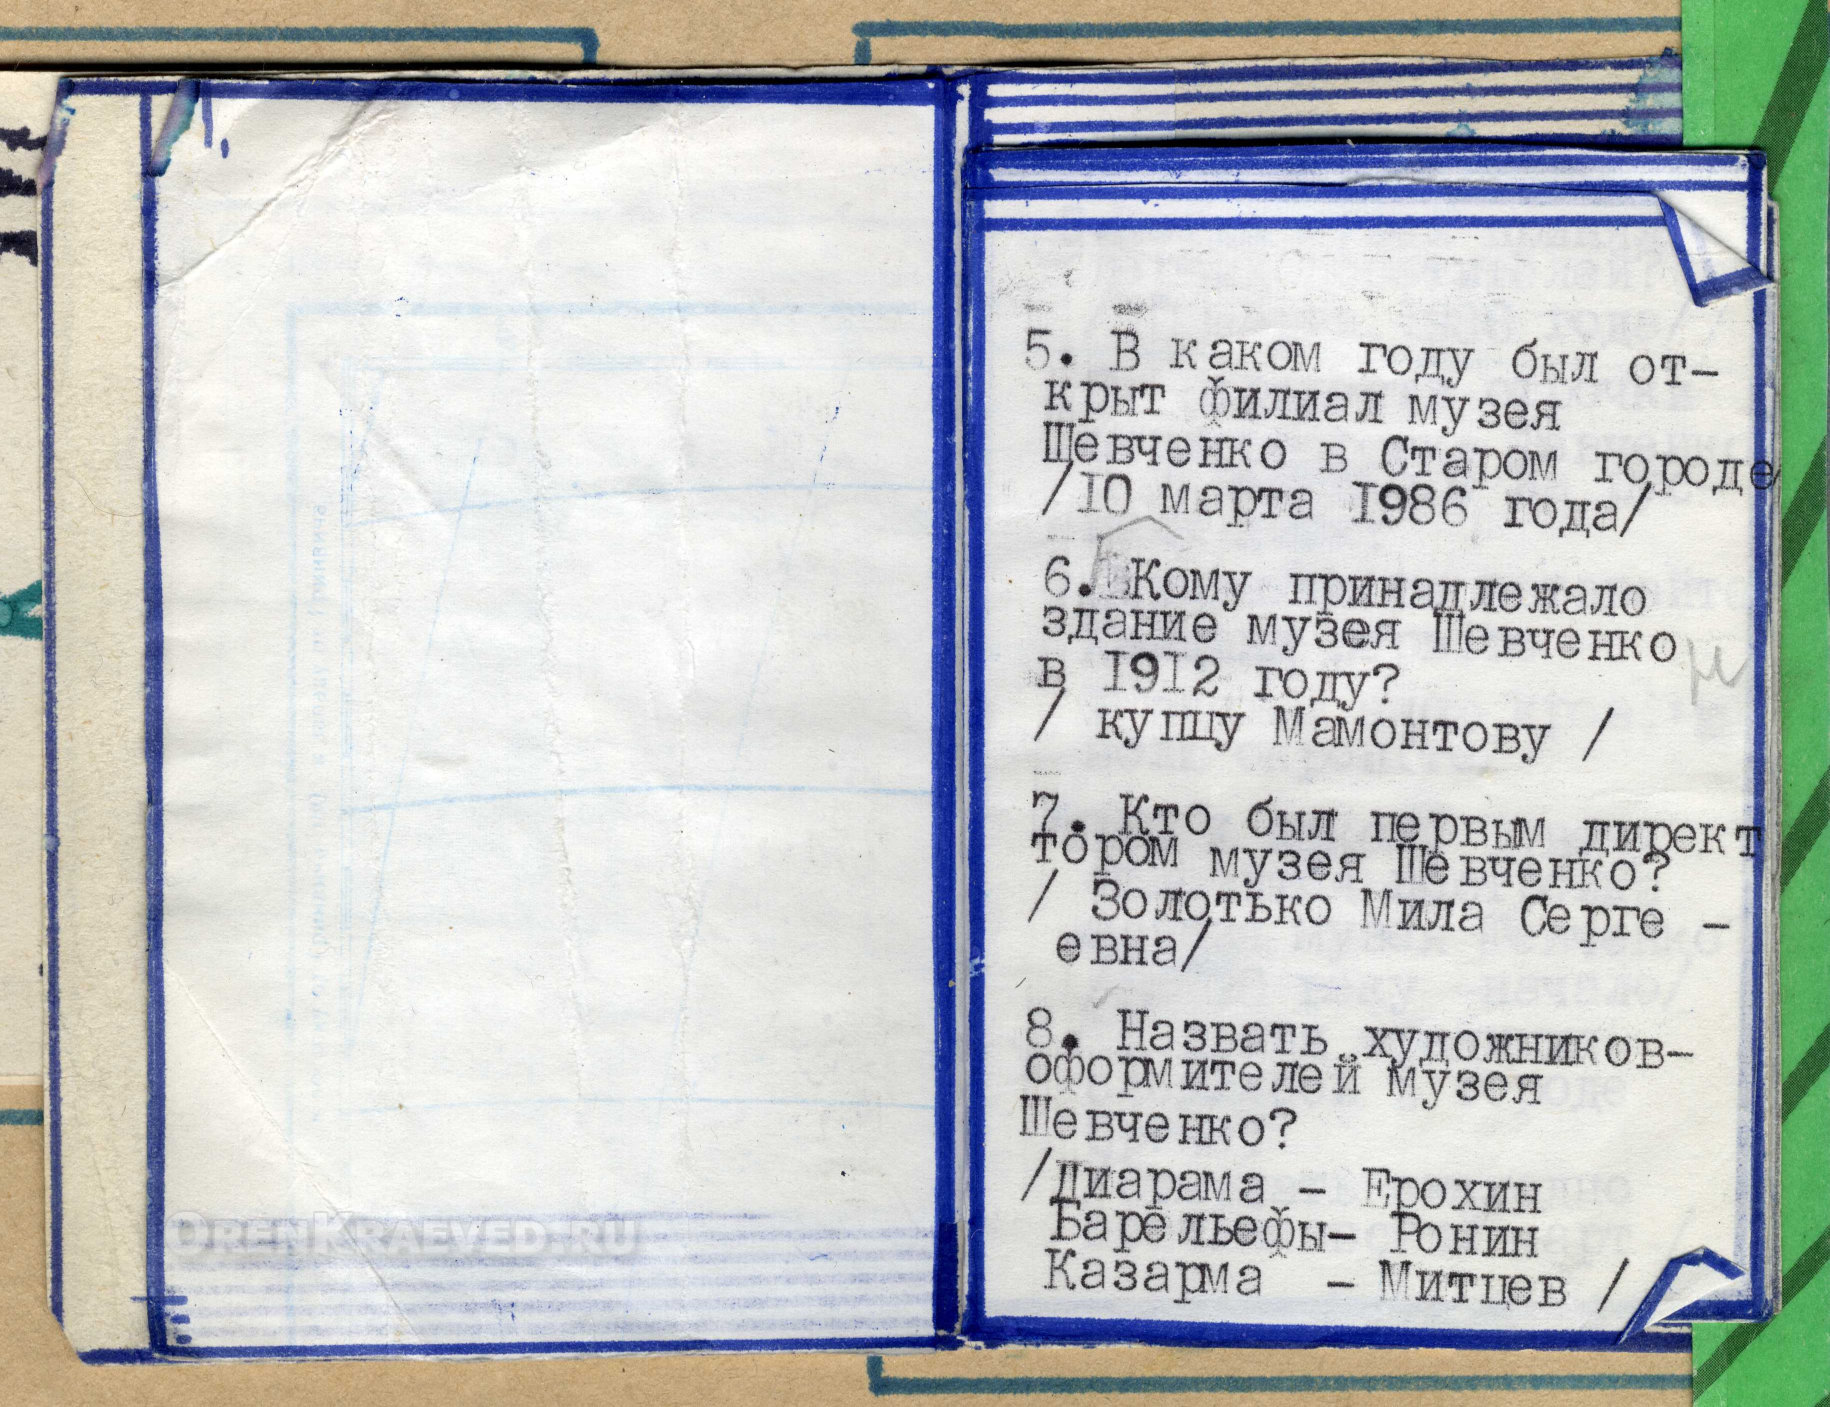 5. В каком году был от-
крыт филиал музея
Шевченко в Старом городе
/10 марта 1986 года/
6. Кому принадлежало
здание музея Шевченко
в 1912 году?
/ купцу Мамонтову /
7. Кто был первым директ
тором музея Шевченко?
/ Золотько Мила Серге -
евна/
8. Назвать художников-
оформителей музея
Шевченко?
/Диарама - Ерохин
Барельефы- Ронин
Казарма - Митцев /
OrenKraeved.ru